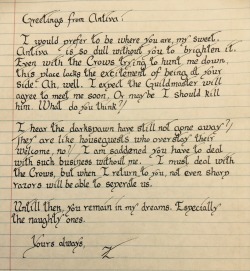 Greetings from Antiva!
I would prefer to be where you are, my sweet.
Antiva is so dull without you to brighten it.
Even with the Crows trying to hunt me down,
this place lacks the excitement of being at your
side. Ah, well. I expect the Guildmaster will
agree to meet me soon. Or may be I should kill
him. What do you think?
I hear the darkspawn have still not gone away?!
They are like houseguests who overstay their
welcome, no? I am saddened you have to deal
with such business without me. I must deal with
the Crows, but when I return to you, not even sharp
razors will be able to seperate us.
Untill then, you remain in my dreams. Especially
the naughty ones.
Yours always,
Z